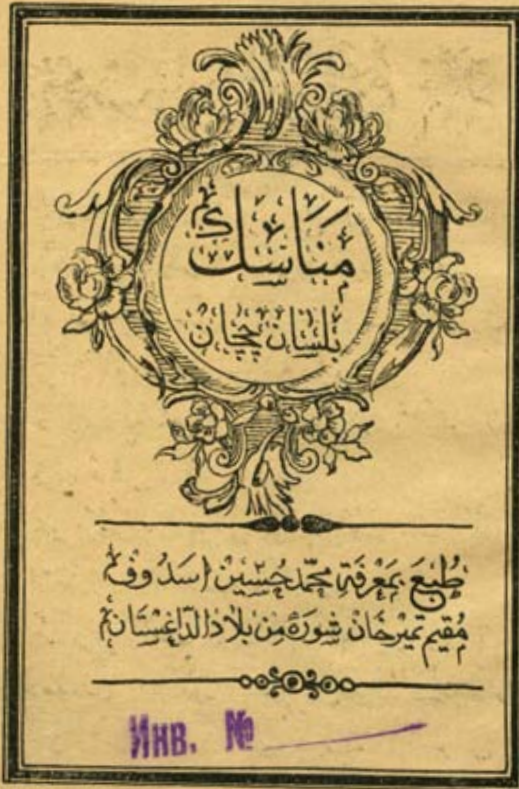 مَنَاسِك
بلسان چچان
طُبِعَ بمَعْرِفَةِ مُحَمَّد حُسَيْن اسَدُوف
مُقِيم تَمِيرخَان شُورَهْ مِنْ بلادِ الدَّاغِسْتَان
Инв. №